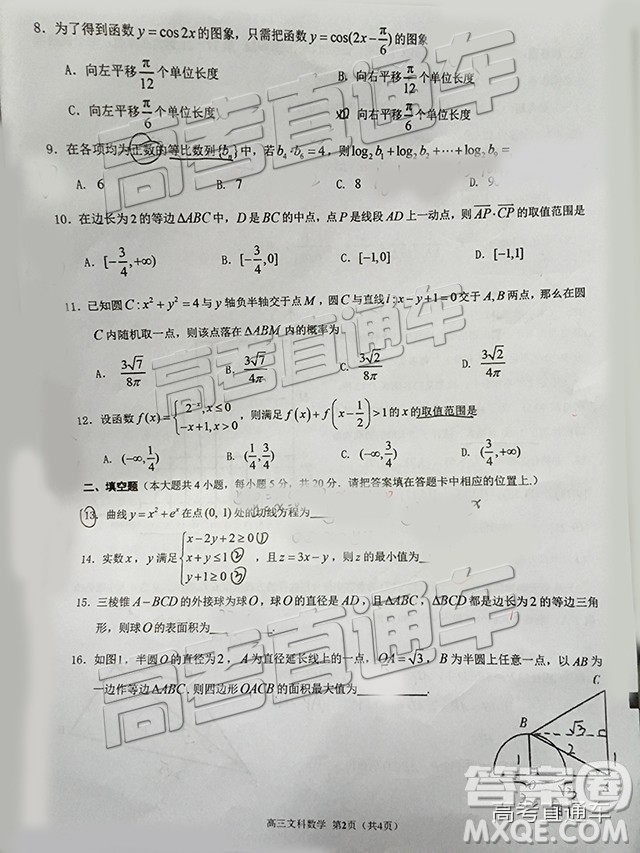 8. 为了得到函数 y=cos2x 的图象，只需把函数 y=cos(2x-π/6) 的图象
A. 向左平移 π/12 个单位长度 B. 向右平移 π/12 个单位长度
C. 向左平移 π/6 个单位长度 D. 向右平移 π/6 个单位长度
9. 在各项均为正数的等比数列{bₙ}中，若 b₄·b₆=4，则 log₂b₁+log₂b₂+⋯+log₂b₉=
A. 6 B. 7 C. 8 D. 9
10. 在边长为2的等边ΔABC中，D是BC的中点，点P是线段AD上一动点，则 AP·CP 的取值范围是
A. [-3/4,+∞) B. [-3/4,0] C. [-1,0] D. [-1,1]
11. 已知圆C:x²+y²=4与y轴负半轴交于点M，圆C与直线l:x-y+1=0交于A,B两点，那么在圆
C内随机取一点，则该点落在ΔABM内的概率为
A. 3√7/8π B. 3√7/4π C. 3√2/8π D. 3√2/4π
12. 设函数 f(x)={2⁻ˣ,x≤0 -x+1,x>0，则满足 f(x)+f(x-1/2)>1 的x的取值范围是
A. (-∞,1/4) B. (1/4,3/4) C. (-∞,3/4) D. (-∞,1/4]
二、填空题（本大题共4小题，每小题5分，共20分．请把答案填在答题卡中相应的位置上．）
13. 曲线 y=x²+eˣ 在点(0,1)处的切线方程为
x
14. 实数x，y满足{x-2y+2≥0 ① x+y≤1 ② y+1≥0 ③，且z=3x-y，则z的最小值为
15. 三棱锥A-BCD的外接球为球O，球O的直径是AD，且ΔABC，ΔBCD都是边长为2的等边三角
形，则球O的表面积为
16. 如图1，半圆O的直径为2，A为直径延长线上的一点，OA=√3，B为半圆上任意一点，以AB为
一边作等边ΔABC，则四边形OACB的面积最大值为
C
B
√3
2
1
高三文科数学 第2页（共4页）
高考直通车
高考直通车
高考直通车
高考直通车
答案圈
MXQE.COM
高考直通车